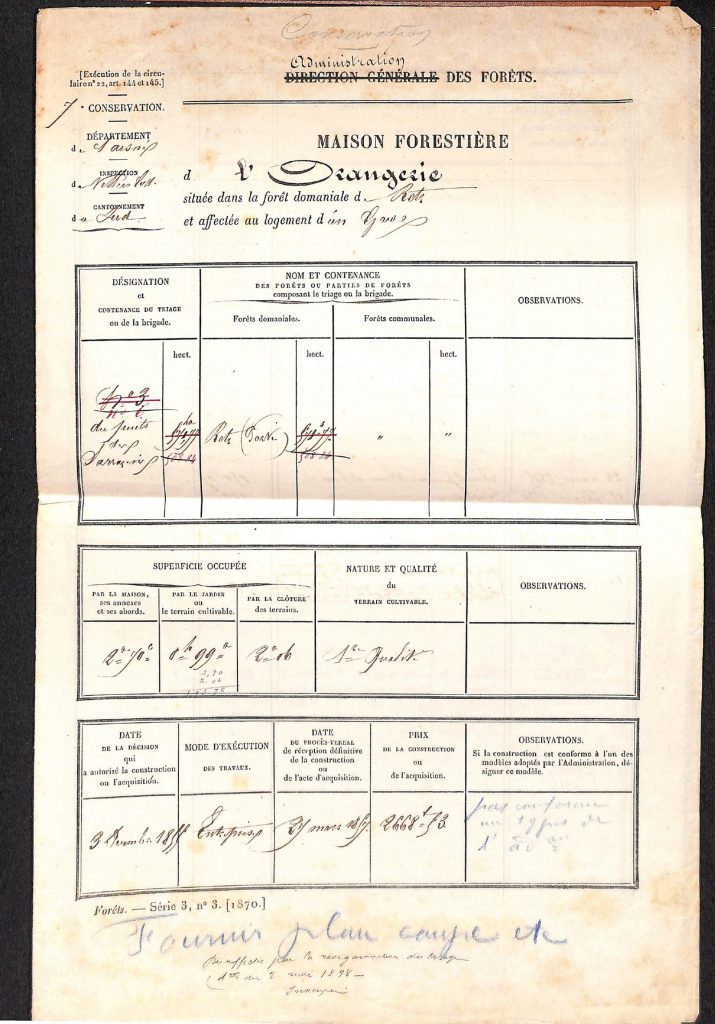 Conservation
Administration
DIRECTION GÉNÉRALE DES FORÊTS.
[Exécution de la circu-
laire n° 22, art. 144 et 145.]
7e CONSERVATION.
DÉPARTEMENT
de l'aisne
INSPECTION
de Villers Cott
CANTONNEMENT
de Sud
MAISON FORESTIÈRE
d l'Orangerie
située dans la forêt domaniale d Retz
et affectée au logement d'un Garde
DÉSIGNATION
et
CONTENANCE DU TRIAGE
ou de la brigade.
NOM ET CONTENANCE
DES FORÊTS OU PARTIES DE FORÊTS
composant le triage ou la brigade.
Forêts domaniales.
Forêts communales.
OBSERVATIONS.
hect.
hect.
hect.
n° 3
n° 6
du puits
des
Sarrasins
508.24
Retz (Partie)
508.24
"
"
SUPERFICIE OCCUPÉE
PAR LA MAISON,
ses annexes
et ses abords.
PAR LE JARDIN
ou
le terrain cultivable.
PAR LA CLÔTURE
des terrains.
NATURE ET QUALITÉ
du
TERRAIN CULTIVABLE.
OBSERVATIONS.
2a 70c
0h 99a
2a 06
1re Qualité
2,70
2.06
DATE
DE LA DÉCISION
qui
a autorisé la construction
ou l'acquisition.
MODE D'EXÉCUTION
DES TRAVAUX.
DATE
DU PROCÈS-VERBAL
de réception définitive
de la construction
ou
de l'acte d'acquisition.
PRIX
DE LA CONSTRUCTION
ou
de l'acquisition.
OBSERVATIONS.
Si la construction est conforme à l'un des
modèles adoptés par l'Administration, dé-
signer ce modèle.
3 Décembre
Entreprise
27 mars
2668f 53
pas conforme
un type de
l'
Forêts. — Série 3, n° 3. [1870.]
Fournir plan coupe etc
par la réorganisation du triage
du 2 mai 1898